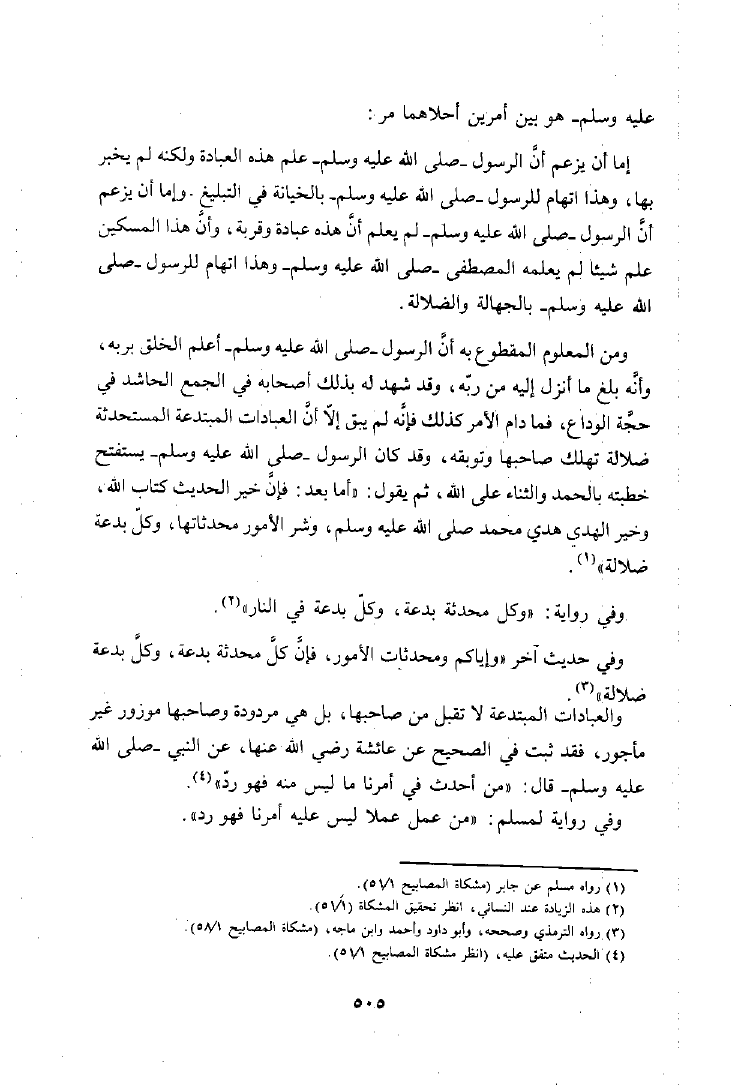 عليه وسلم- هو بين أمرين أحلاهما مر :
إما أن يزعم أنَّ الرسول -صلى الله عليه وسلم- علم هذه العبادة ولكنه لم يخبر
بها، وهذا اتهام للرسول -صلى الله عليه وسلم- بالخيانة في التبليغ . وإما أن يزعم
أنَّ الرسول -صلى الله عليه وسلم- لم يعلم أنَّ هذه عبادة وقربة، وأنَّ هذا المسكين
علم شيئا لم يعلمه المصطفى -صلى الله عليه وسلم- وهذا اتهام للرسول -صلى
الله عليه وسلم- بالجهالة والضلالة .
ومن المعلوم المقطوع به أنَّ الرسول -صلى الله عليه وسلم- أعلم الخلق بربه،
وأنَّه بلغ ما أنزل إليه من ربّه، وقد شهد له بذلك أصحابه في الجمع الحاشد في
حجَّة الوداع، فما دام الأمر كذلك فإنَّه لم يبق إلاّ أنَّ العبادات المبتدعة المستحدثة
ضلالة تهلك صاحبها وتوبقه، وقد كان الرسول -صلى الله عليه وسلم- يستفتح
خطبته بالحمد والثناء على الله، ثم يقول: «أما بعد: فإنَّ خير الحديث كتاب الله،
وخير الهدي هدي محمد صلى الله عليه وسلم، وشر الأمور محدثاتها، وكلّ بدعة
ضلالة»(١).
وفي رواية: «وكل محدثة بدعة، وكلّ بدعة في النار»(٢).
وفي حديث آخر «وإياكم ومحدثات الأمور، فإنَّ كلَّ محدثة بدعة، وكلَّ بدعة
ضلالة»(٣).
والعبادات المبتدعة لا تقبل من صاحبها، بل هي مردودة وصاحبها موزور غير
مأجور، فقد ثبت في الصحيح عن عائشة رضي الله عنها، عن النبي -صلى الله
عليه وسلم- قال: «من أحدث في أمرنا ما ليس منه فهو ردّ»(٤).
وفي رواية لمسلم: «من عمل عملا ليس عليه أمرنا فهو رد».
(١) رواه مسلم عن جابر (مشكاة المصابيح ٥١/١).
(٢) هذه الزيادة عند النسائي، انظر تحقيق المشكاة (٥١/١).
(٣) رواه الترمذي وصححه، وأبو داود وأحمد وابن ماجه، (مشكاة المصابيح ٥٨/١).
(٤) الحديث متفق عليه، (انظر مشكاة المصابيح ٥١/١).
٥٠٥